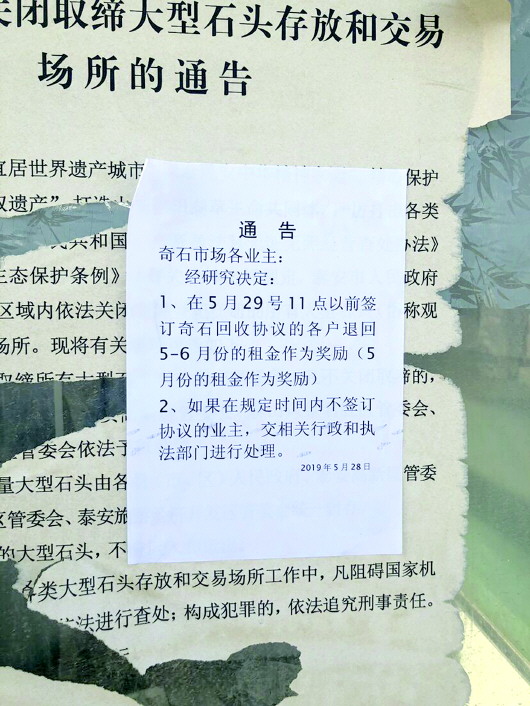 关闭取缔大型石头存放和交易
场所的通告
宜居世界遗产城市
保护
双遗产”
各类
民共和国
办法》
生态保护条例》
政府
区域内依法关闭
称观
场所。现将有关
取缔所有大型石
缔的,
委会、
管委会依法予
量大型石头由各
管委
区管委会、泰安旅
的大型石头,不
各类大型石头存放和交易场所工作中,凡阻碍国家机
依法进行查处;构成犯罪的,依法追究刑事责任。
通 告
奇石市场各业主:
经研究决定:
1、在5月29号11点以前签
订奇石回收协议的各户退回
5-6月份的租金作为奖励(5
月份的租金作为奖励)
2、如果在规定时间内不签订
协议的业主,交相关行政和执
法部门进行处理。
2019年5月28日